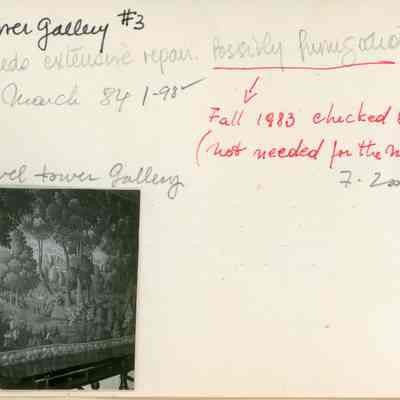 wer Gallery #3
eds extensive repair. Possibly fumigatio
March 84 1-98
Fall 1983 checked
(not needed for the m
vel tower Gallery
7. 200